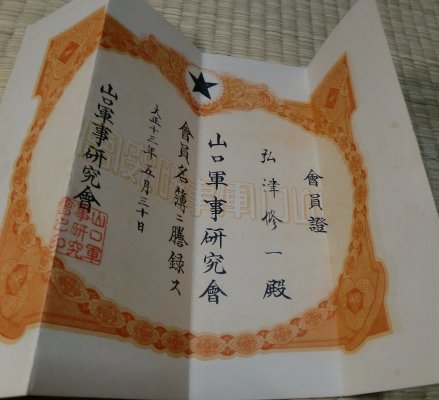 會員證
弘津修一殿
山口軍事研究會
會員名簿ニ謄録ス
大正十三年五月三十日
山口軍事研究會
山口軍
事研究
會之印